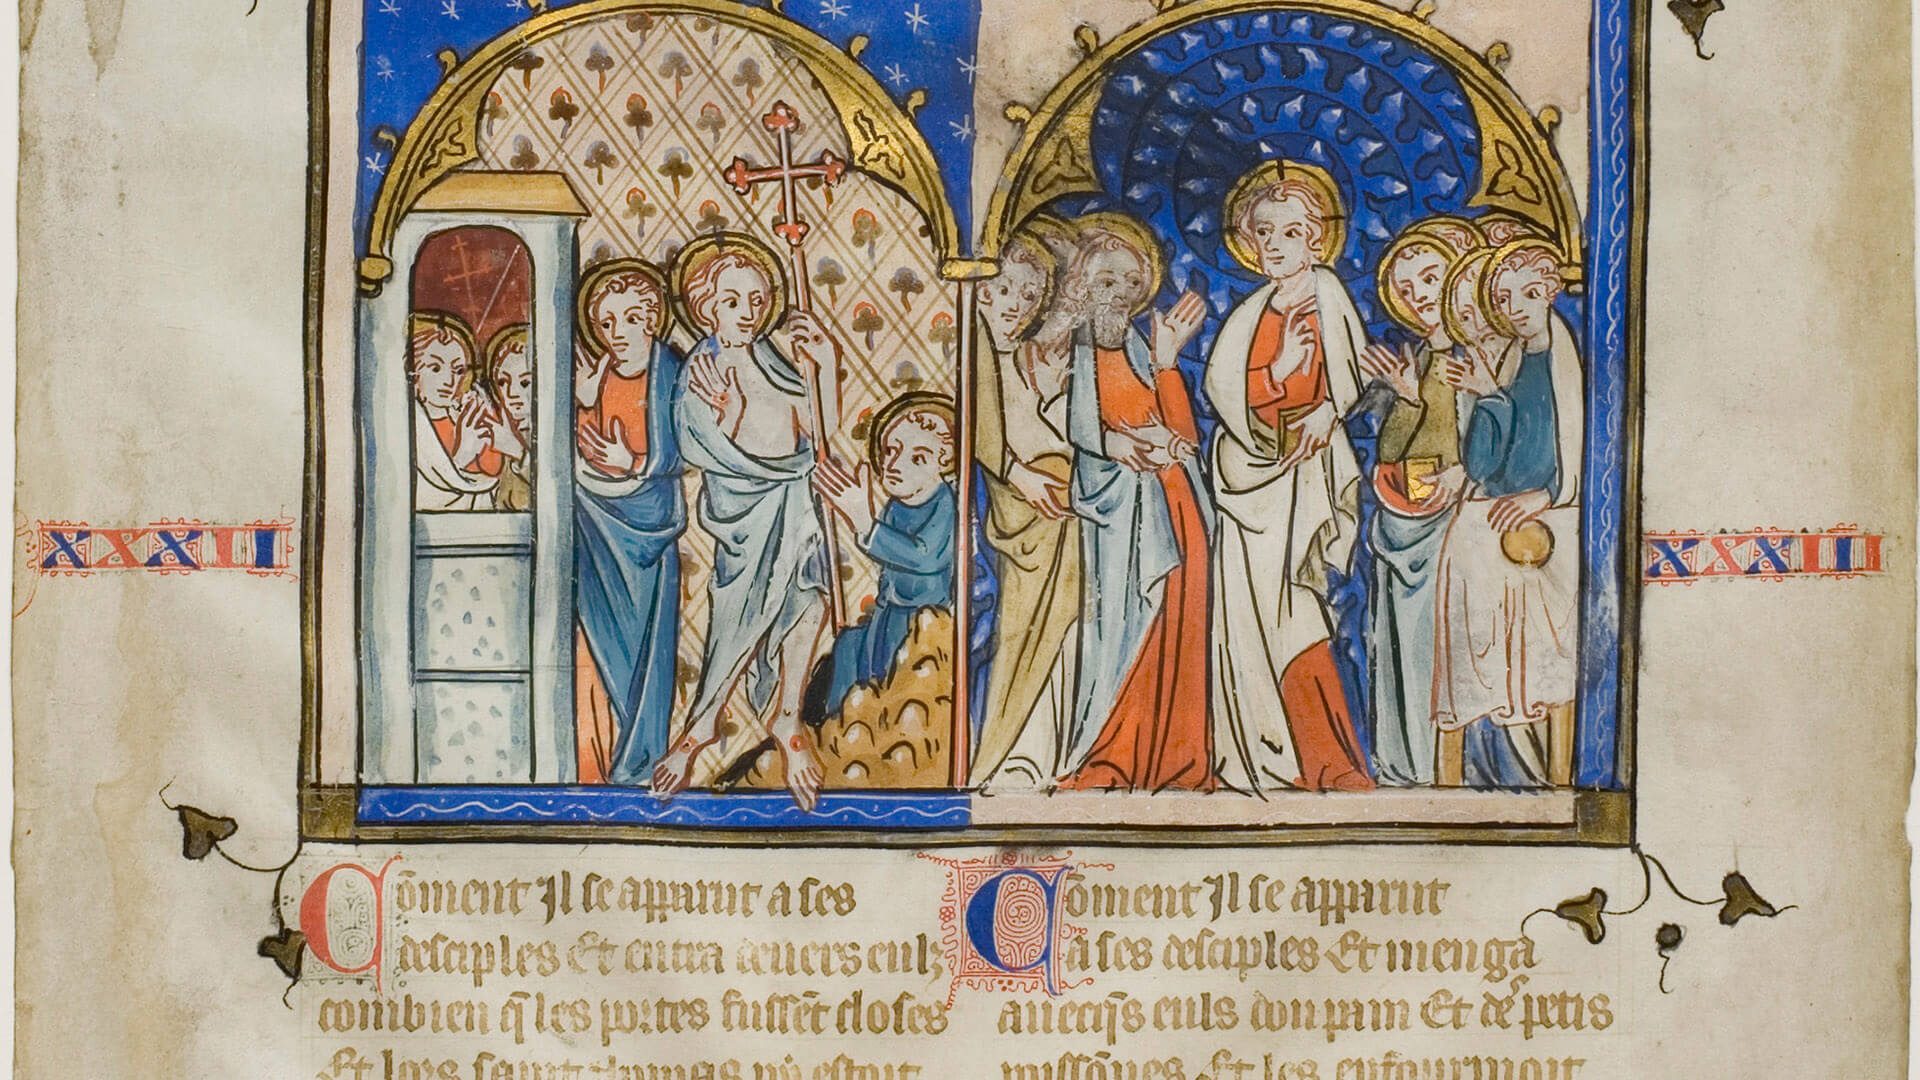 XXXII
Cōment Il se apparut a ses
desciples Et entra deuers eulz
combien q̄ les portes fussēt closes
Et lors saint thomas ny estoit
XXXIII
Cōment Il se apparut
a ses desciples Et menga
auecq̄s euls dou pain Et de petis
Et les enfourmoit